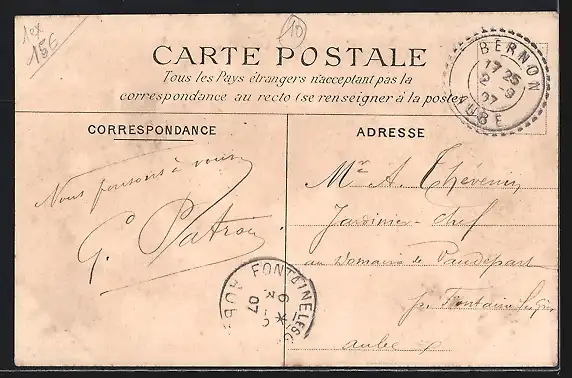 1ex
15€
10
CARTE POSTALE
Tous les Pays étrangers n'acceptant pas la
correspondance au recto (se renseigner à la poste)
BERNON
17 25
9
07
AUBE
CORRESPONDANCE
ADRESSE
Nous pensons à vous
G. Patrois
Mr A. Thévenin
Jardinier-Chef
au Domaine de Vaudepart
par Fontaine les Grès
Aube
FONTAINE LES GRÈS
07
AUBE